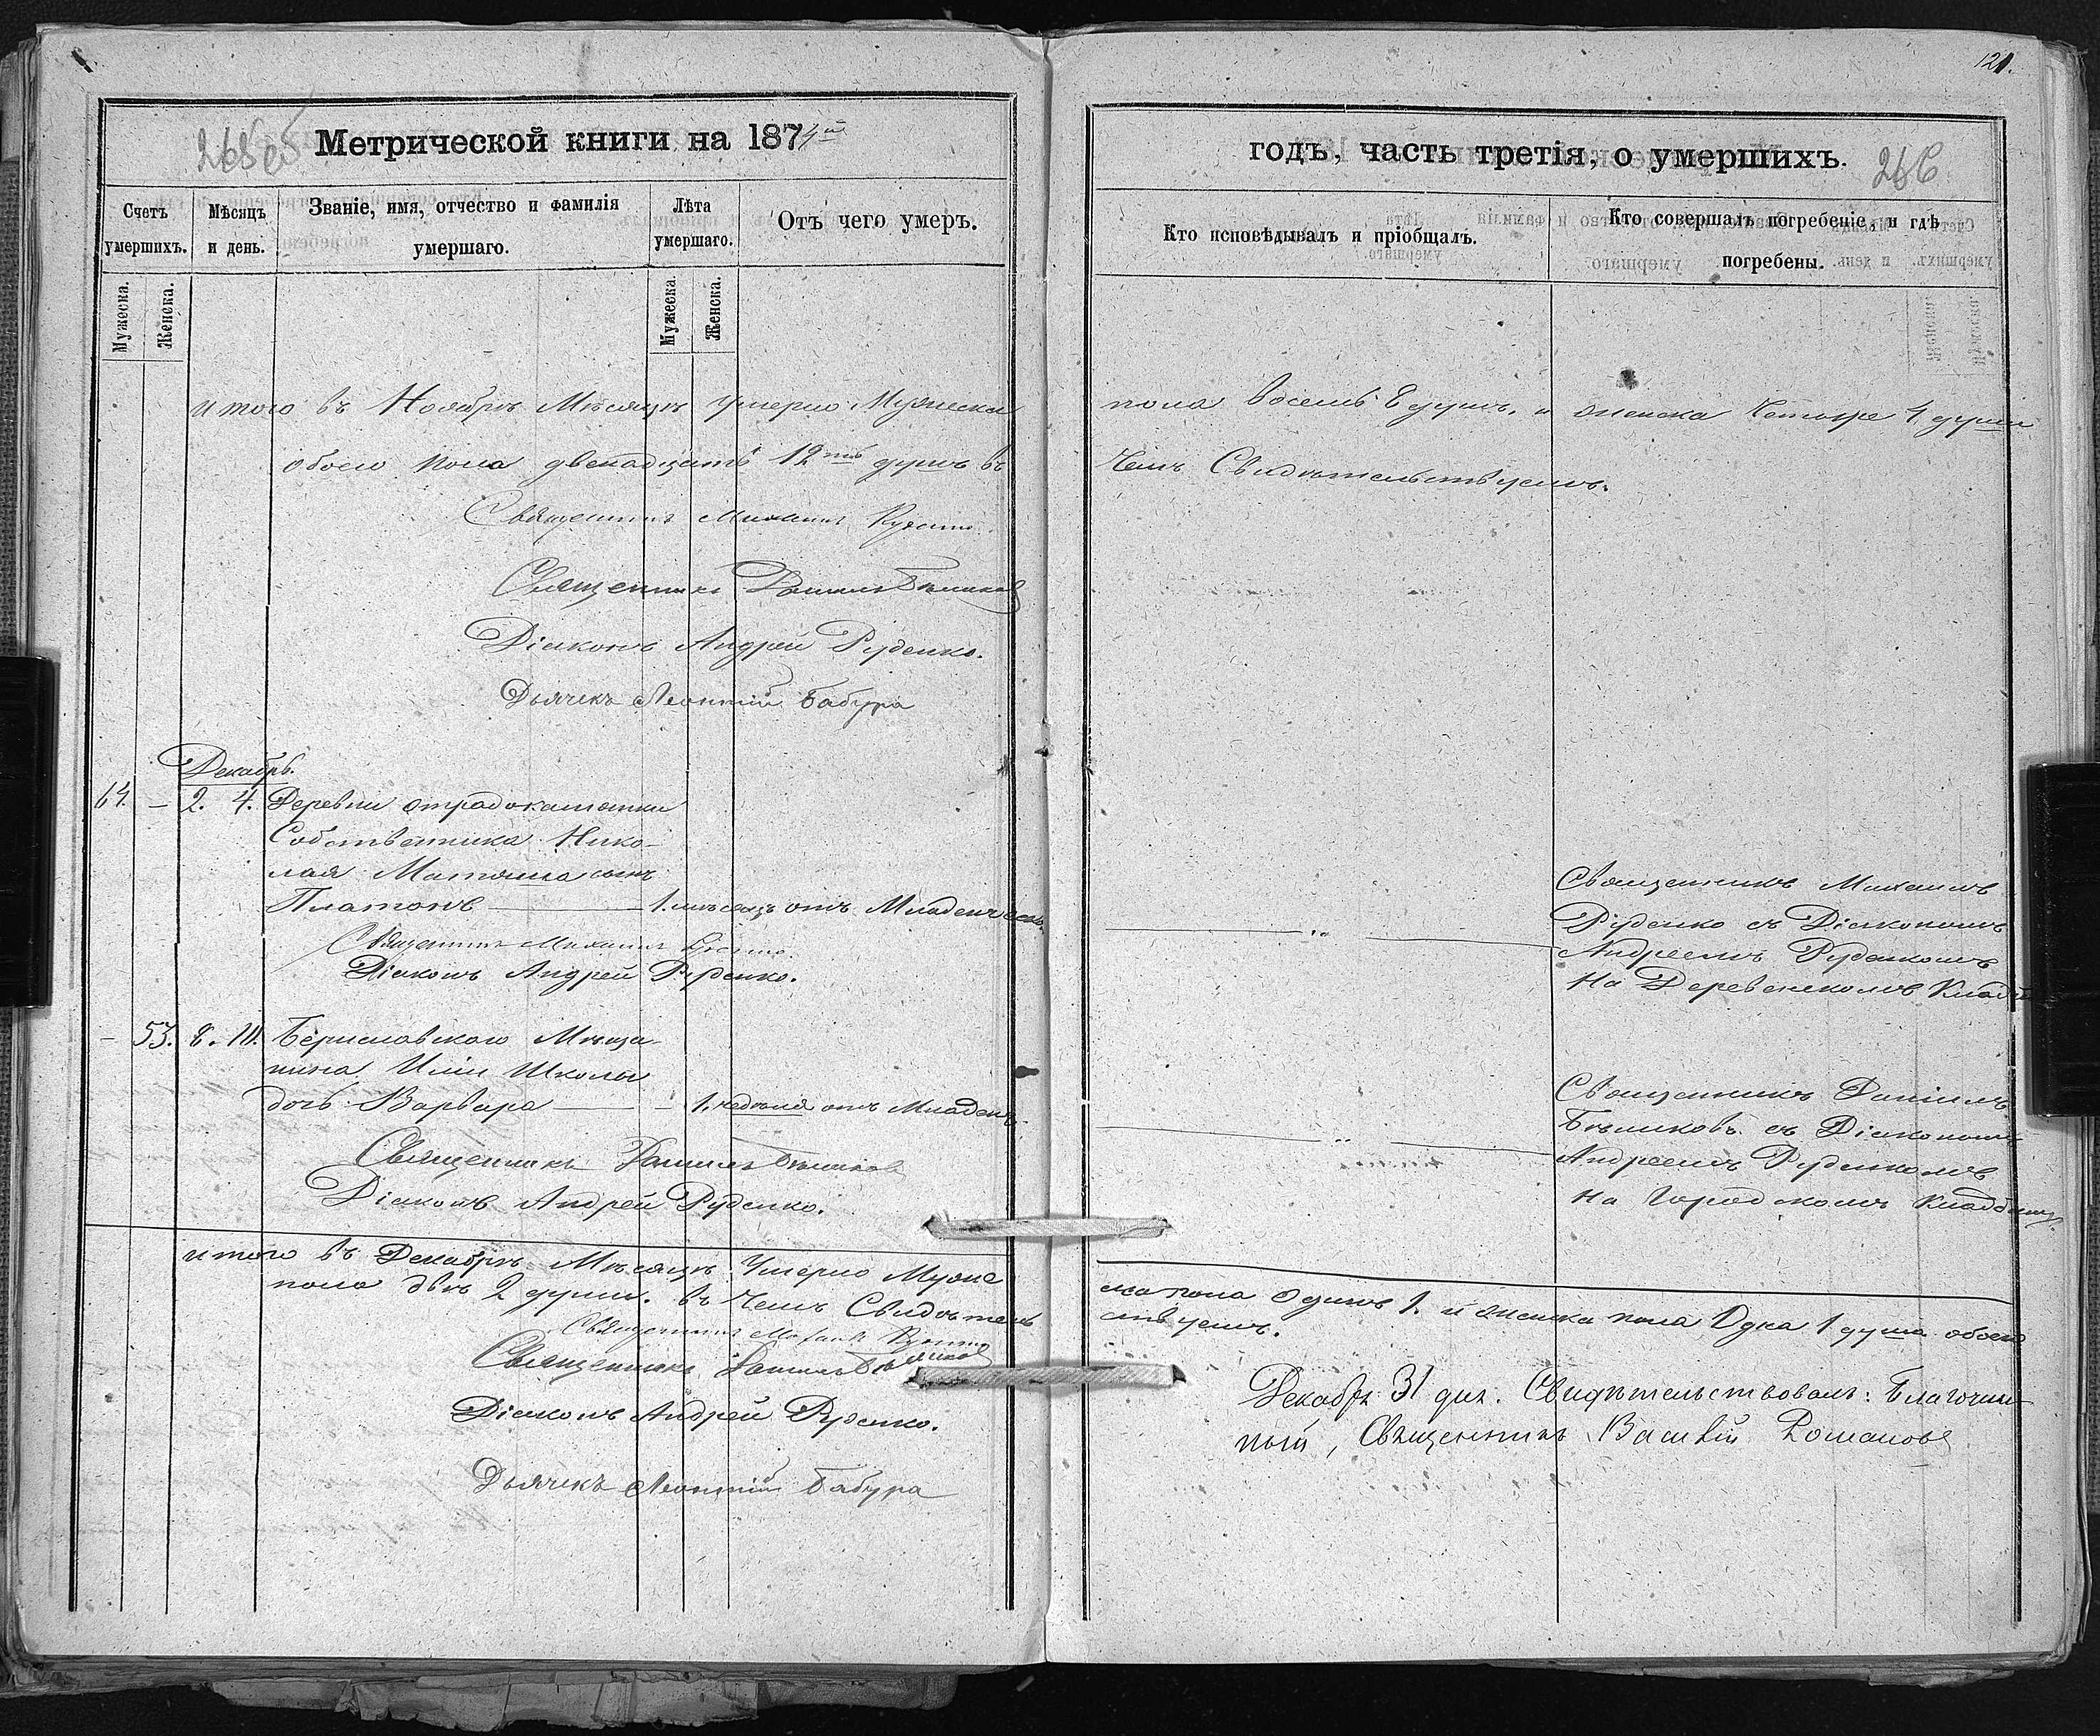 121.
265об
Метрической книги на 1874й
годъ, часть третія, о умершихъ.
266
Счетъ умершихъ.
Мѣсяцъ и день.
Званіе, имя, отчество и фамилія умершаго.
Лѣта умершаго.
Отъ чего умеръ.
Кто исповѣдывалъ и пріобщалъ.
Кто совершалъ погребеніе, и гдѣ погребены.
Мужеска.
Женска.
Мужеска
Женска.
итого въ Ноябрѣ Мѣсяцѣ умерло Мужеска
пола восемь 8 душъ, и женска Четыре 4 души
обоего пола двенадцать 12ть душъ въ
Чемъ Свидѣтельствуемъ.
Священникъ Михаилъ
Священникъ Даніилъ Бѣликовъ
Діаконъ Андрей Руденко.
Дьячекъ Леонтій Бабура
Декабрь.
64. — 2. 4. Деревни отрадокаменки
Собственника Нико-
лая сынъ
Платонъ — 1. мѣсяцъ отъ Младенческ.
Священникъ Михаилъ
Діаконъ Андрей Руденко.
Священникъ Михаилъ
Руденко съ Діакономъ
Андреемъ Руденкомъ
На Деревенскомъ Кладб
— 53. 8. 10. Бериславскаго Мѣща-
нина Иліи Школы
дочь Варвара — — 1. неделя отъ Младенч.
Священникъ Даніилъ Бѣликовъ
Діаконъ Андрей Руденко.
Священникъ Даніилъ
Бѣликовъ съ Діакономъ
Андреемъ Руденкомъ
На Городскомъ Кладбищѣ.
итого въ Декабрѣ Мѣсяцѣ Умерло Муже
ска пола одинъ 1. и женска пола Одна 1 душа обоего
пола двѣ 2 души. въ Чемъ Свидѣтель
ствуемъ.
Священникъ Михаилъ
Священникъ Даніилъ Бѣликовъ
Діаконъ Андрей Руденко.
Дьячекъ Леонтій Бабура
Декабря 31 дня. Свидѣтельствовалъ: Благочин-
ный, Священникъ Василій Романовъ